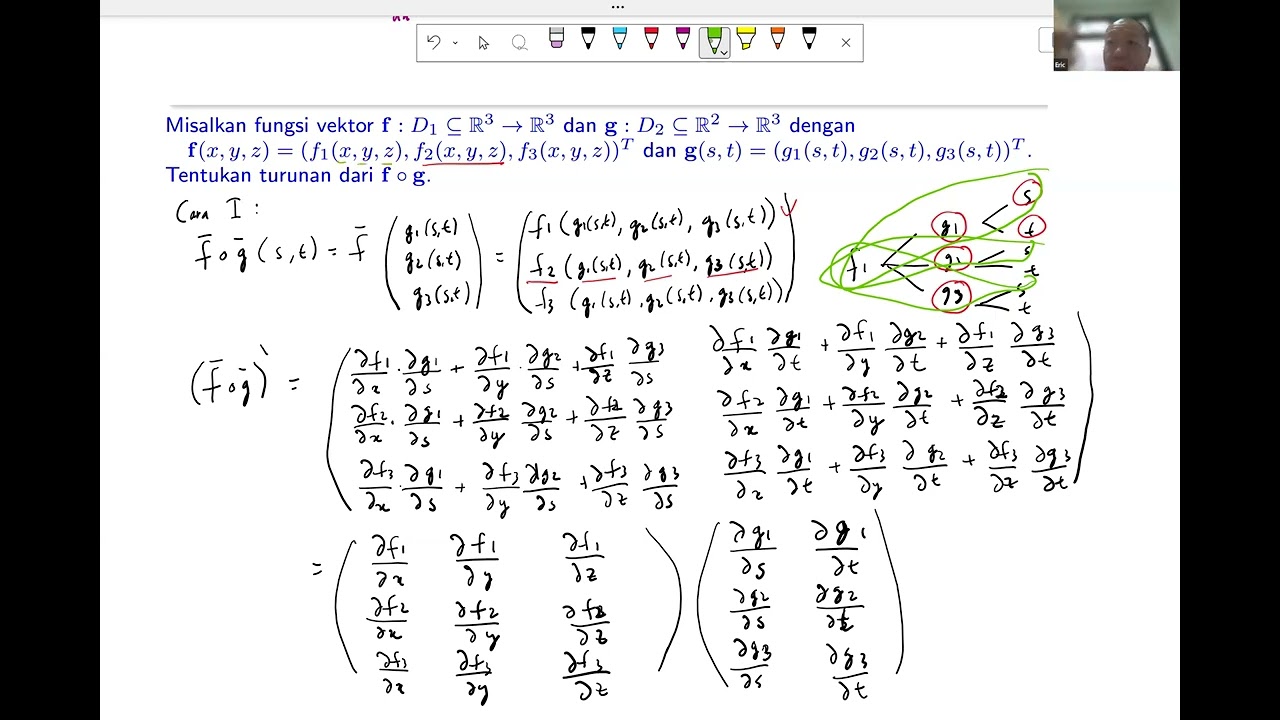 Eric
Misalkan fungsi vektor f : D₁ ⊆ ℝ³ → ℝ³ dan g : D₂ ⊆ ℝ² → ℝ³ dengan
f(x, y, z) = (f₁(x, y, z), f₂(x, y, z), f₃(x, y, z))ᵀ dan g(s, t) = (g₁(s, t), g₂(s, t), g₃(s, t))ᵀ.
Tentukan turunan dari f ∘ g.
Cara I :
f̄ ∘ ḡ (s,t) = f̄ ( g₁(s,t) ; g₂(s,t) ; g₃(s,t) ) = ( f₁(g₁(s,t), g₂(s,t), g₃(s,t)) ; f₂(g₁(s,t), g₂(s,t), g₃(s,t)) ; f₃(g₁(s,t), g₂(s,t), g₃(s,t)) )
f₁ < g₁ < s t
g₁ < s t
g₃ < s t
(f̄ ∘ ḡ)' =
∂f₁/∂x · ∂g₁/∂s + ∂f₁/∂y · ∂g₂/∂s + ∂f₁/∂z · ∂g₃/∂s    ∂f₁/∂x ∂g₁/∂t + ∂f₁/∂y ∂g₂/∂t + ∂f₁/∂z ∂g₃/∂t
∂f₂/∂x · ∂g₁/∂s + ∂f₂/∂y ∂g₂/∂s + ∂f₂/∂z ∂g₃/∂s    ∂f₂/∂x ∂g₁/∂t + ∂f₂/∂y ∂g₂/∂t + ∂f₂/∂z ∂g₃/∂t
∂f₃/∂x · ∂g₁/∂s + ∂f₃/∂y ∂g₂/∂s + ∂f₃/∂z ∂g₃/∂s    ∂f₃/∂x ∂g₁/∂t + ∂f₃/∂y ∂g₂/∂t + ∂f₃/∂z ∂g₃/∂t
=
∂f₁/∂x ∂f₁/∂y ∂f₁/∂z    ∂g₁/∂s ∂g₁/∂t
∂f₂/∂x ∂f₂/∂y ∂f₂/∂z    ∂g₂/∂s ∂g₂/∂t
∂f₃/∂x ∂f₃/∂y ∂f₃/∂z    ∂g₃/∂s ∂g₃/∂t